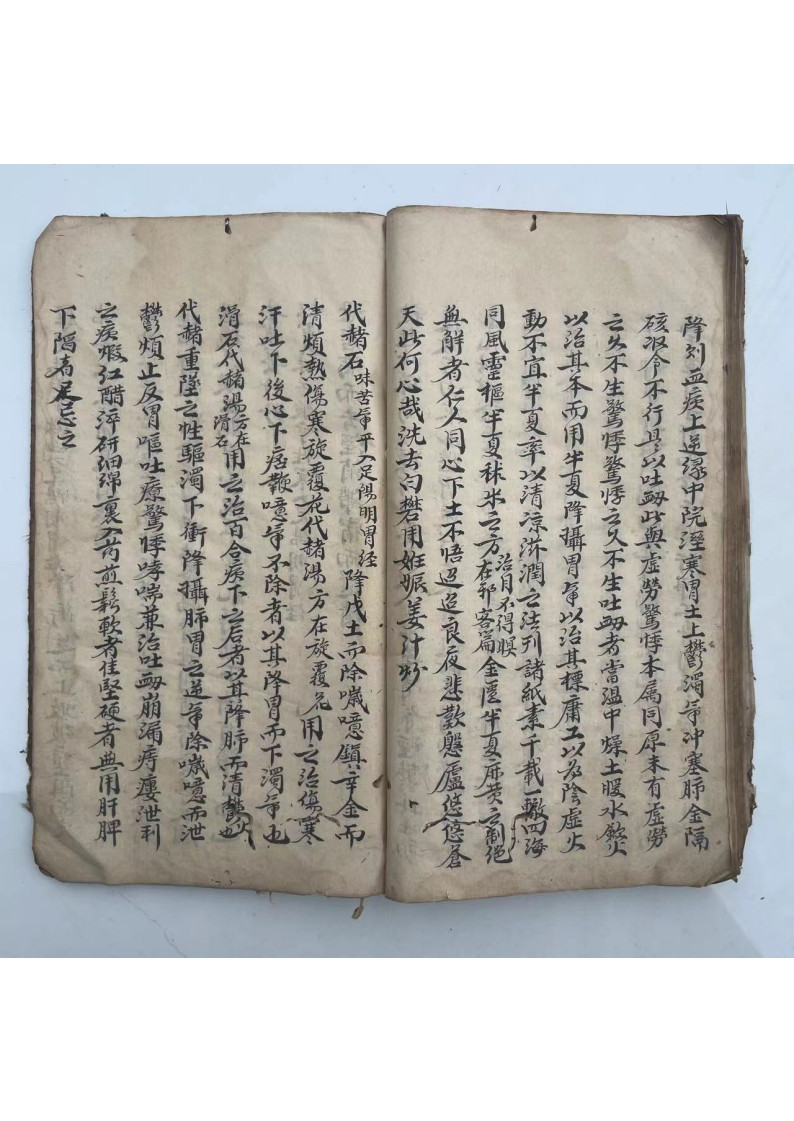 降刘血疾上逆缘中脘溼寒胃土上鬱濁氣冲塞肺金隔
礙收令不行是以吐衄此與虛勞驚悸本属同原未有虛勞
之久不生驚悸驚悸之久不生吐衄者當温中燥土暖水歛火
以治其本而用半夏降攝胃氣以治其標庸工以為陰虛火
動不宜半夏率以清凉滋潤之法刊諸紙素千載一轍四海
同風靈樞半夏秫米之方治目不得瞑在邪客篇金匱半夏麻黄之制絕
無解者仁人同心下士不悟迢迢良夜悲歎慇盧悠悠蒼
天此何心哉洗去白礬用妊娠姜汁炒
代赭石味苦氣平入足陽明胃経降戊土而除噦噫鎮辛金而
清煩熱傷寒旋覆花代赭湯方在旋覆花用之治傷寒
汗吐下後心下痞鞕噫氣不除者以其降胃而下濁氣也
滑石代赭湯方在滑石用之治百合疾下之后者以其降肺而清鬱火也
代赭重墜之性驅濁下衝降攝肺胃之逆氣除噦噫而泄
鬱煩止反胃嘔吐療驚悸哮喘兼治吐衄崩漏痔瘻泄利
之疾煅红醋淬研细绵裹入药煎鬆軟者佳堅硬者無用肝脾
下陷者最忌之